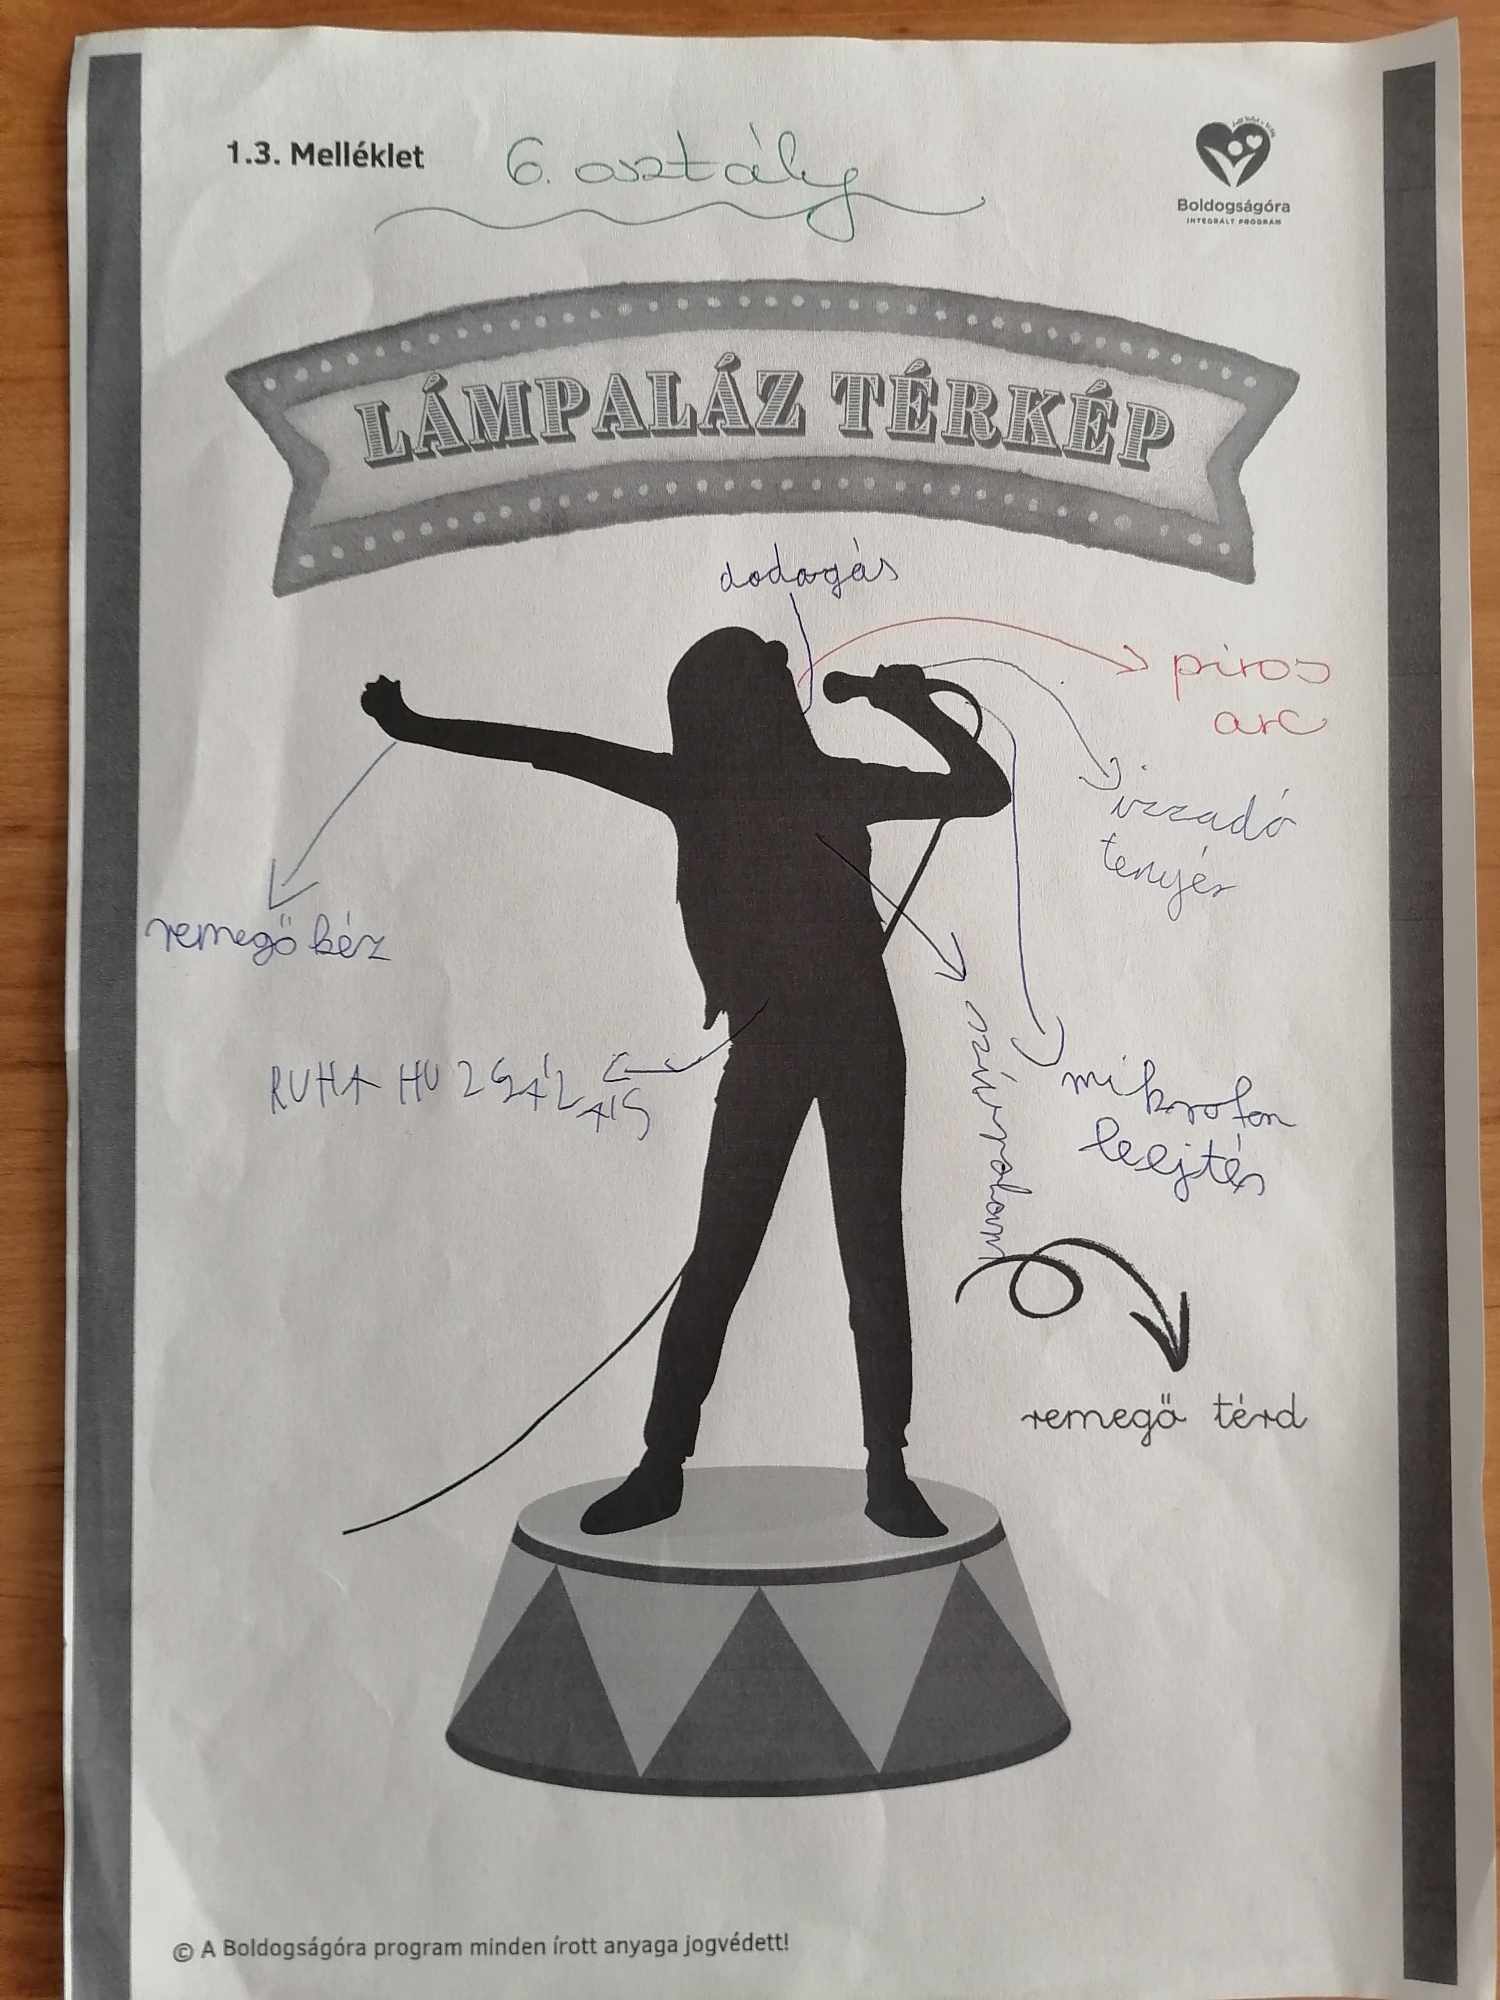 1.3. Melléklet
6. osztály
Boldogságóra
INTEGRÁLT PROGRAM
LÁMPALÁZ TÉRKÉP
dadogás
piros
arc
izzadó
tenyér
remegő kéz
RUHA HUZGÁLÁS
mikrofon
leejtés
remegő térd
© A Boldogságóra program minden írott anyaga jogvédett!